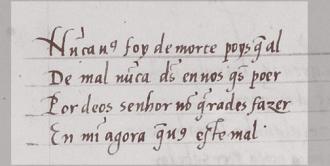 Nũca uꝯ foy de morte poys q̃ al
De mal nũca ds̃ en uos qs̃ poer
Por deos senhor nõ q̃rades fazer
En mĩ agora q̃ uꝯ este mal